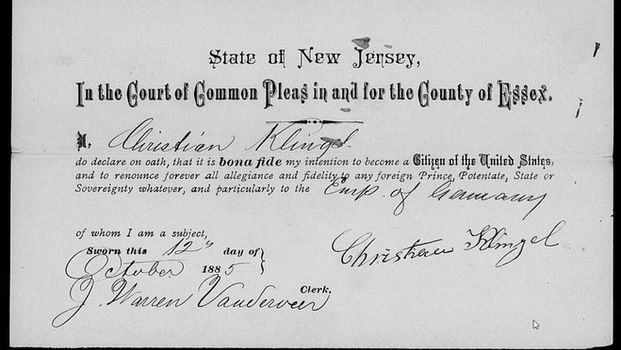 State of New Jersey,
In the Court of Common Pleas in and for the County of Essex.
I, Christian Klingel
do declare on oath, that it is bona fide my intention to become a Citizen of the United States,
and to renounce forever all allegiance and fidelity to any foreign Prince, Potentate, State or
Sovereignty whatever, and particularly to the Emp. of Germany
of whom I am a subject,
Sworn this 12" day of
Christian Klingel
October 1885
J. Warren Vanderveer Clerk.